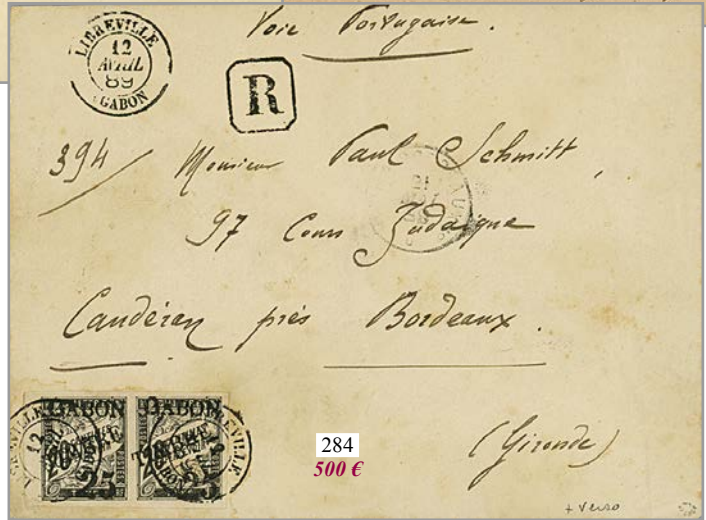 Voie Portugaise.
LIBREVILLE
12
AVRIL
89
GABON
R
394 / Monsieur Paul Schmitt,
97 Cours Judaïque
Caudéran près Bordeaux.
(Gironde)
GABON GABON
TIMBRE
25 25
284
500 €
+ verso